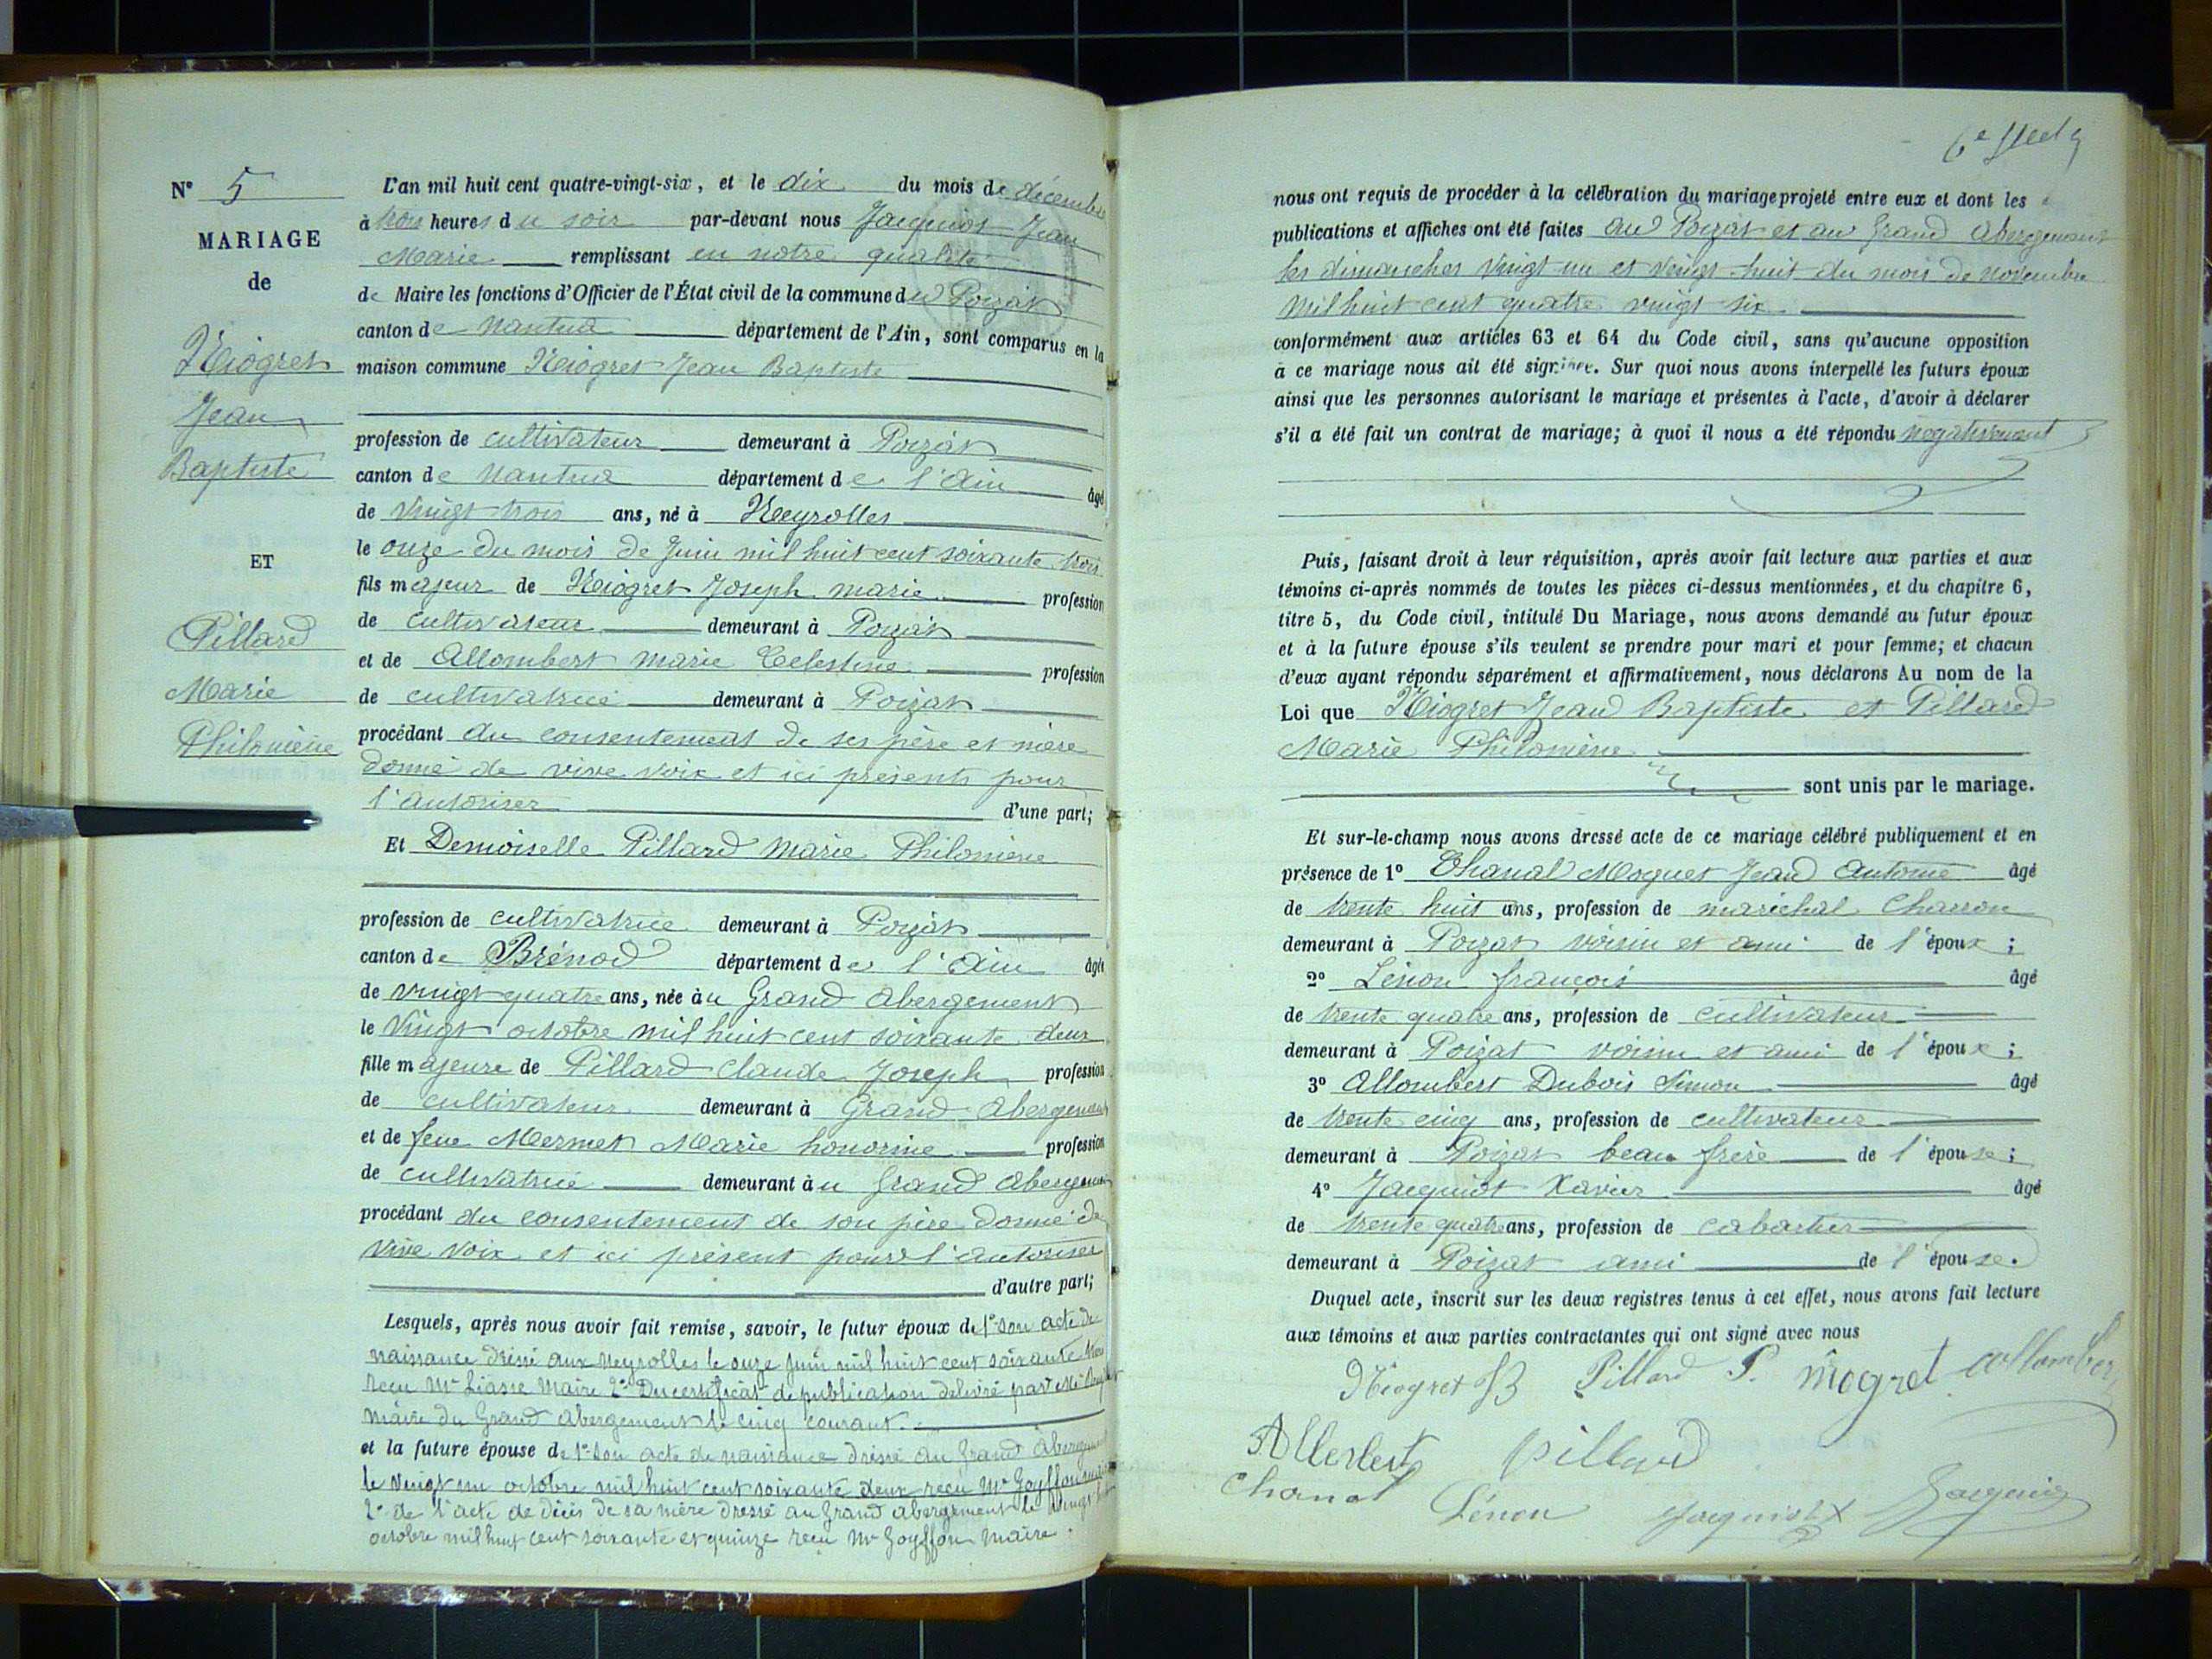 N° 5
MARIAGE
de
Niogret
Jean
Baptiste
ET
Pillard
Marie
Philomène
L'an mil huit cent quatre-vingt-six, et le dix du mois de décembre
à trois heures du soir par-devant nous Jacquiot Jean
Marie remplissant en notre qualité
de Maire les fonctions d'Officier de l'État civil de la commune du Poizat
canton de Nantua département de l'Ain, sont comparus en la
maison commune Niogret Jean Baptiste
profession de cultivateur demeurant à Poizat
canton de Nantua département de l'Ain âgé
de vingt trois ans, né à Neyrolles
le onze du mois de Juin mil huit cent soixante trois
fils majeur de Niogret Joseph marie profession
de cultivateur demeurant à Poizat
et de Allombert marie Celestine profession
de cultivatrice demeurant à Poizat
procédant du consentement de ses père et mère
donné de vive voix et ici présents pour
l'autoriser d'une part;
Et Demoiselle Pillard Marie Philomène
profession de cultivatrice demeurant à Poizat
canton de Brénod département de l'Ain âgée
de vingt quatre ans, née au Grand abergement
le vingt octobre mil huit cent soixante deux
fille majeure de Pillard Claude Joseph profession
de cultivateur demeurant à Grand Abergement
et de feue Mermet Marie honorine profession
de cultivatrice demeurant au Grand Abergement
procédant du consentement de son père donné de
vive voix et ici présent pour l'autoriser
d'autre part;
Lesquels, après nous avoir fait remise, savoir, le futur époux de 1° son acte de
naissance dréssé aux Neyrolles le onze juin mil huit cent soixante trois
reçu Mr Liasse Maire 2° Du certificat de publication délivré par Mr
maire du Grand Abergement le cinq courant.
et la future épouse de 1° son acte de naissance dréssé au Grand Abergement
le vingt un octobre mil huit cent soixante deux reçu Mr Goyffon maire
2° de l'acte de décès de sa mère dressé au Grand abergement le vingt
octobre mil huit cent soixante et quinze reçu Mr Goyffon Maire.
nous ont requis de procéder à la célébration du mariage projeté entre eux et dont les
publications et affiches ont été faites au Poizat et au Grand Abergement
les dimanches vingt un et vingt-huit du mois de novembre
mil huit cent quatre vingt six
conformément aux articles 63 et 64 du Code civil, sans qu'aucune opposition
à ce mariage nous ait été signifiée. Sur quoi nous avons interpellé les futurs époux
ainsi que les personnes autorisant le mariage et présentes à l'acte, d'avoir à déclarer
s'il a été fait un contrat de mariage; à quoi il nous a été répondu négativement
Puis, faisant droit à leur réquisition, après avoir fait lecture aux parties et aux
témoins ci-après nommés de toutes les pièces ci-dessus mentionnées, et du chapitre 6,
titre 5, du Code civil, intitulé Du Mariage, nous avons demandé au futur époux
et à la future épouse s'ils veulent se prendre pour mari et pour femme; et chacun
d'eux ayant répondu séparément et affirmativement, nous déclarons Au nom de la
Loi que Niogret Jean Baptiste et Pillard
Marie Philomène
sont unis par le mariage.
Et sur-le-champ nous avons dressé acte de ce mariage célébré publiquement et en
présence de 1° Chanal Moquet Jean Antoine âgé
de trente huit ans, profession de maréchal Charron
demeurant à Poizat voisin et ami de l'époux;
2° Lénon françois âgé
de trente quatre ans, profession de cultivateur
demeurant à Poizat voisin et ami de l'époux;
3° Allombert Dubois Simon âgé
de trente cinq ans, profession de cultivateur
demeurant à Poizat beau frère de l'épouse;
4° Jacquiot Xavier âgé
de trente quatre ans, profession de cabartier
demeurant à Poizat ami de l'épouse.
Duquel acte, inscrit sur les deux registres tenus à cet effet, nous avons fait lecture
aux témoins et aux parties contractantes qui ont signé avec nous
Niogret JB Pillard P. niogret allomber
pillard
Chanal Lénon Jacquiot X Jacquiot